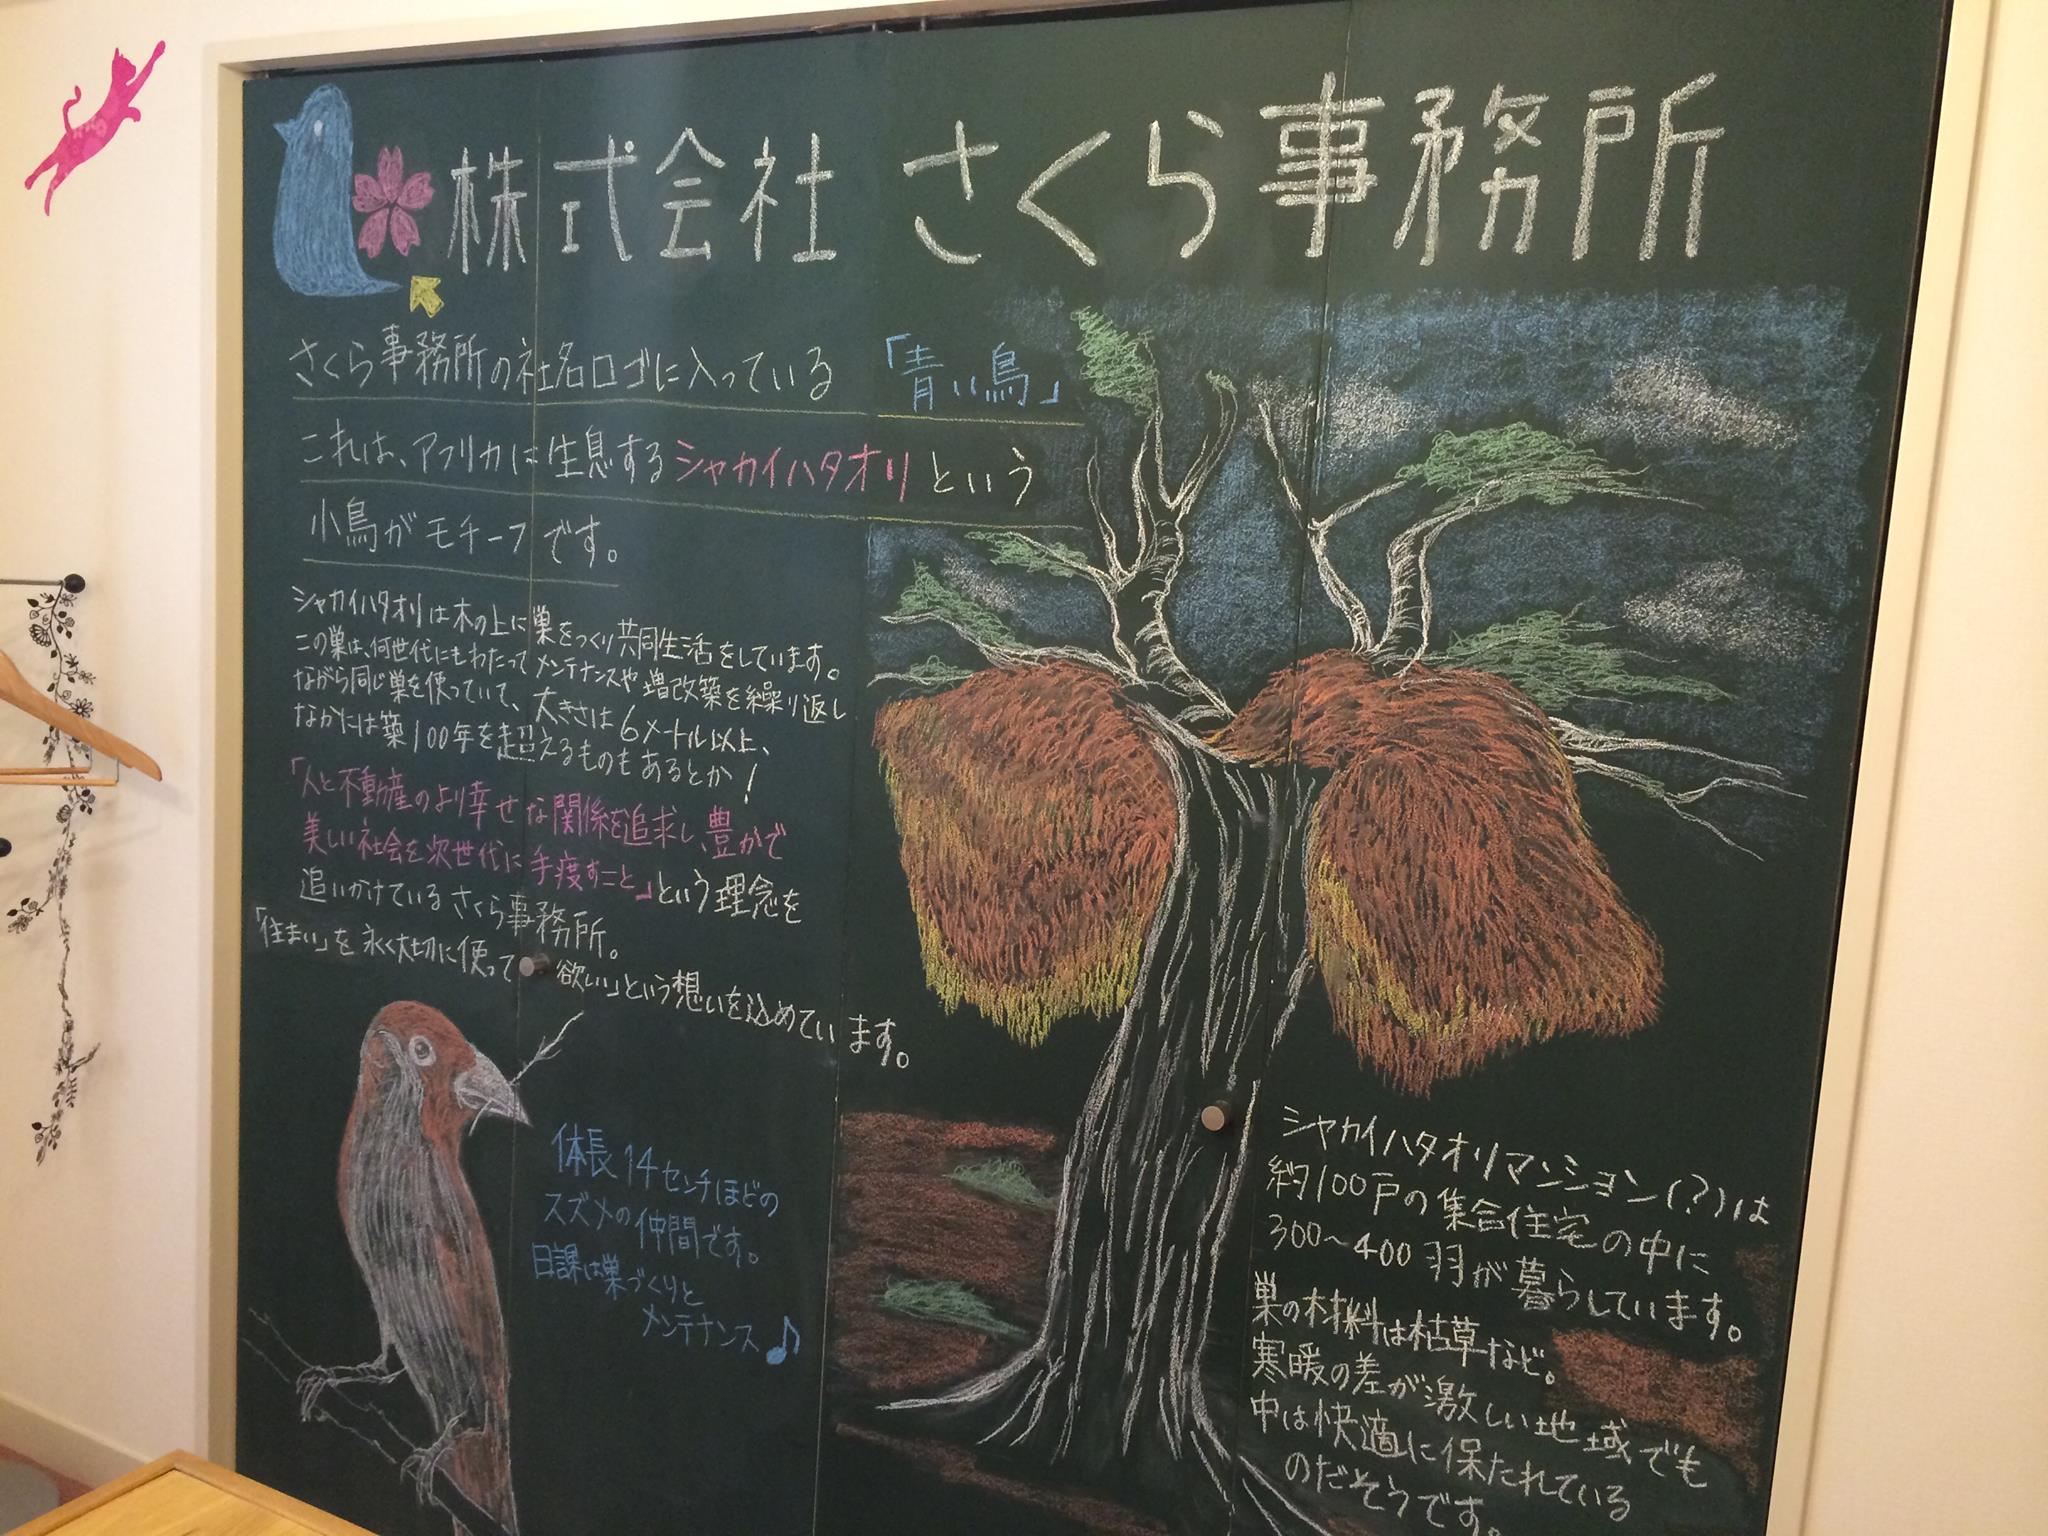 株式会社 さくら事務所
さくら事務所の社名ロゴに入っている 「青い鳥」
これは、アフリカに生息するシャカイハタオリという
小鳥がモチーフです。
シャカイハタオリは木の上に巣をつくり共同生活をしています。
この巣は、何世代にもわたってメンテナンスや増改築を繰り返し
ながら同じ巣を使っていて、大きさは6メートル以上、
なかには築100年を超えるものもあるとか!
「人と不動産のより幸せな関係を追求し、豊かで
美しい社会を次世代に手渡すこと」という理念を
追いかけているさくら事務所。
「住まい」を永く大切に使って欲しい」という想いを込めています。
体長14センチほどの
スズメの仲間です。
日課は巣づくりと
メンテナンス♪
シャカイハタオリマンション(?)は
約100戸の集合住宅の中に
300~400羽が暮らしています。
巣の材料は枯草など。
寒暖の差が激しい地域でも
中は快適に保たれている
のだそうです。